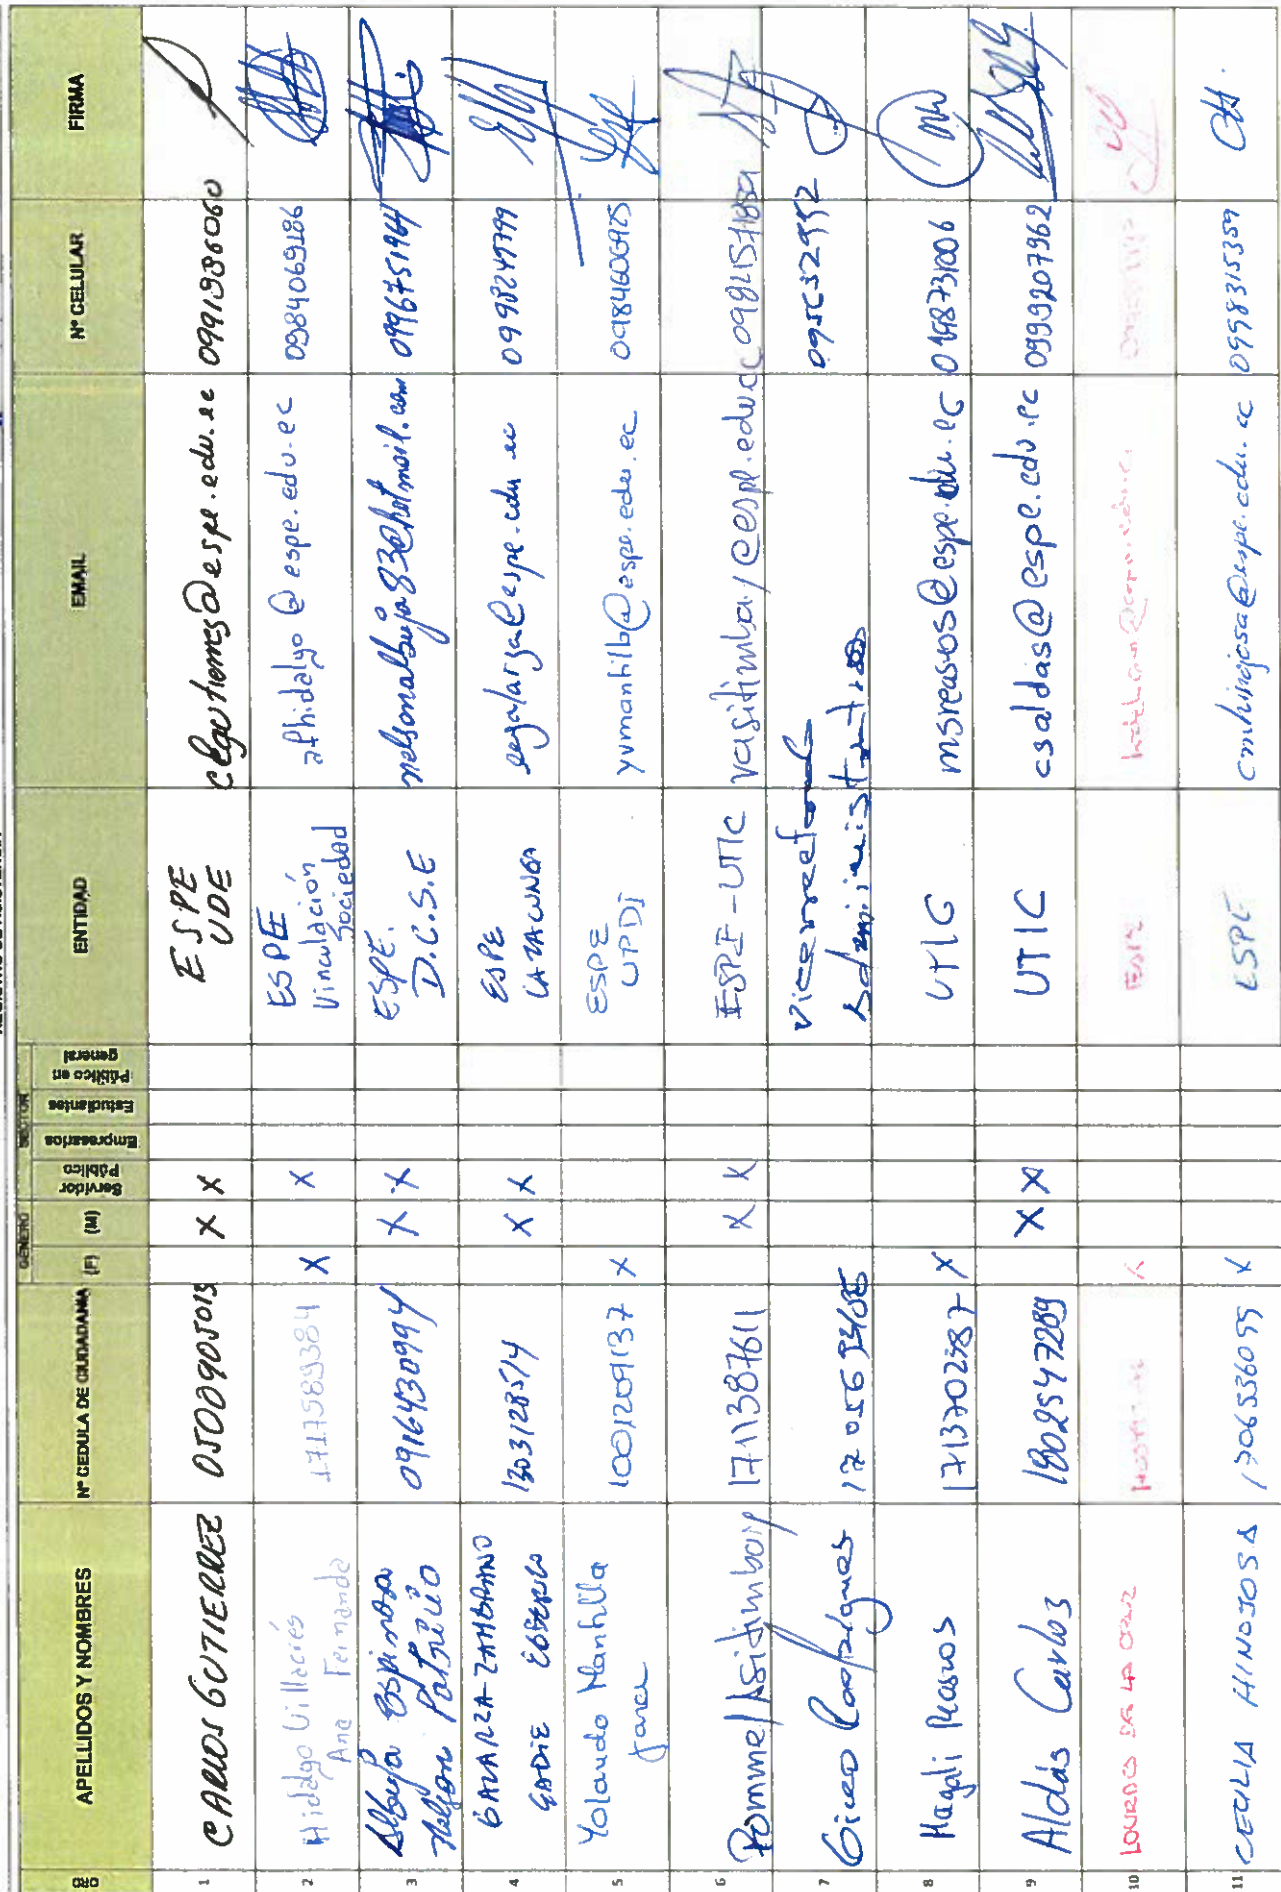 APELLIDOS Y NOMBRES
N° CEDULA DE CIUDADANIA
GENERO
(F)
(M)
SECTOR
Servidor Público
Empresarios
Estudiantes
Público en general
ENTIDAD
EMAIL
N° CELULAR
FIRMA
1 CARLOS GUTIERREZ 0500905013 X X ESPE UDE clgutierrez@espe.edu.ec 0991986060
2 Hidalgo Villacrés Ana Fernanda 1717589384 X X ESPE Vinculación Sociedad afhidalgo@espe.edu.ec 0984069286
3 Albuja Espinosa Nelson Patricio 0916430994 X X ESPE. D.C.S.E nelsonalbuja83@hotmail.com 0996751964
4 GALARZA ZAMBRANO EDDIE EDBERGO X X ESPE LATACUNGA eegalarza@espe.edu.ec 0998249799
5 Yolanda Mantilla Jara 1001209137 X ESPE UPDI yvmantilla@espe.edu.ec 0984606925
6 Rommel Asitimbay 1711387611 X X ESPE-UTIC vasitimbay@espe.edu.ec
7 Vicerrectorado Administrativo
8 Magali Reascos 1713702387 X UTIC msreascos@espe.edu.ec
9 Aldás Carlos 1802547289 X X UTIC csaldas@espe.edu.ec 0999207962
10 LOURDES DE LA CRUZ X ESPE
11 CECILIA HINOJOSA 1706536055 X ESPE cmhinojosa@espe.edu.ec 0998315359